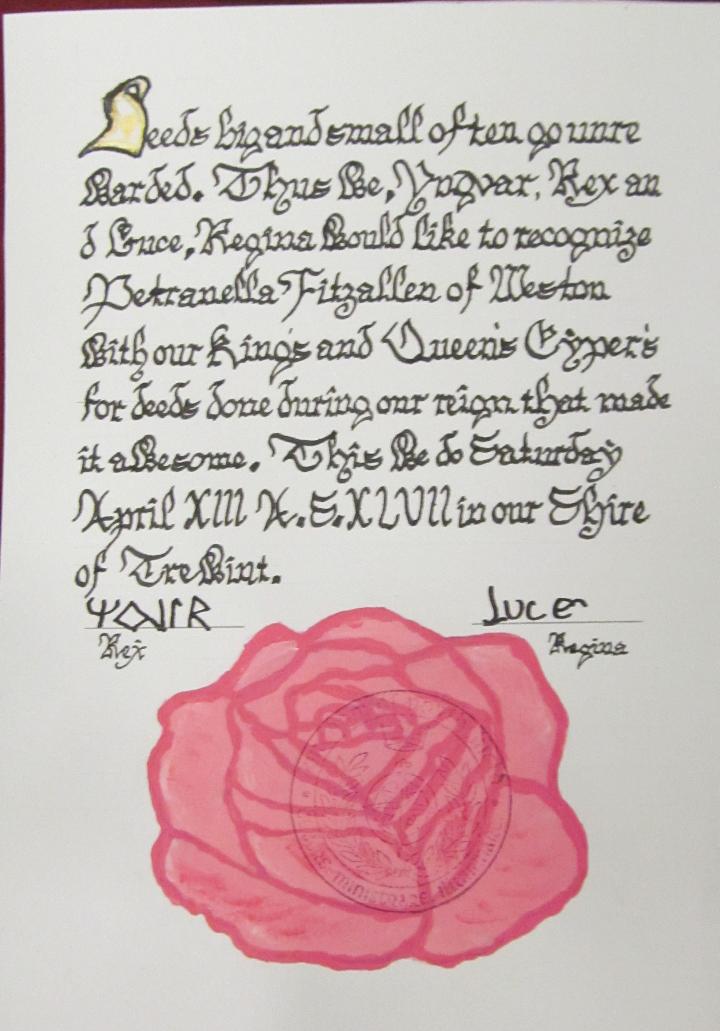 Deeds big and small often go unre
warded. Thus We, Yngvar, Rex an
d Luce, Regina would like to recognize
Petranella Fitzallen of Weston
with our King's and Queen's Cyper's
for deeds done during our reign that made
it awesome. This We do Saturday
April XIII A.S.XLVII in our Shire
of Trewint.
Luce
Rex Regina